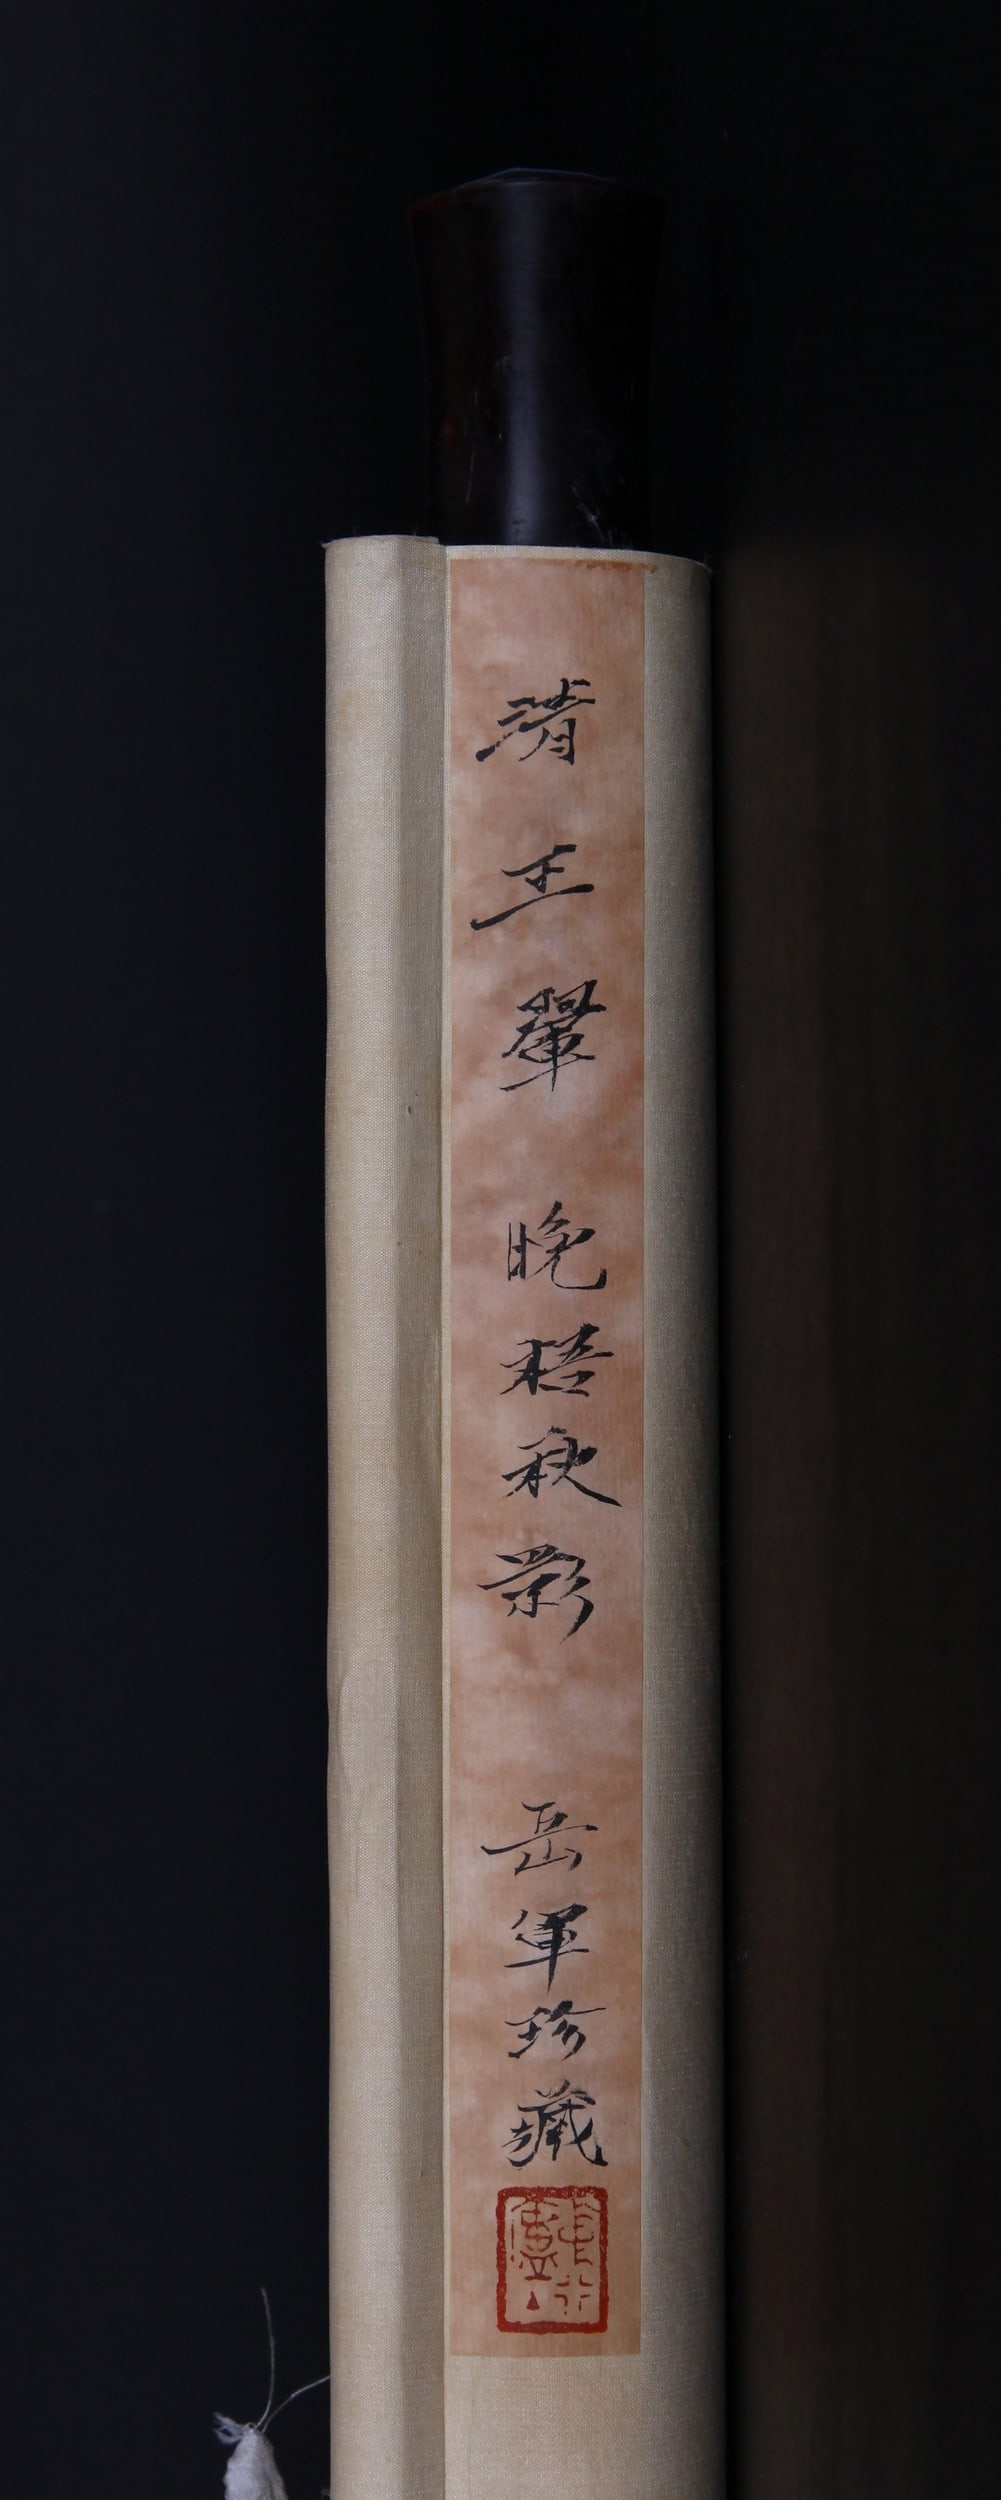 清王翬 晚梧秋影 岳軍珍藏